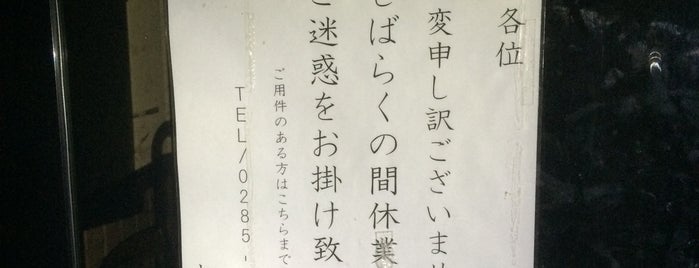 各位
変申し訳ございませ
しばらくの間休業
ご迷惑をお掛け致
ご用件のある方はこちらまで
TEL/0285-